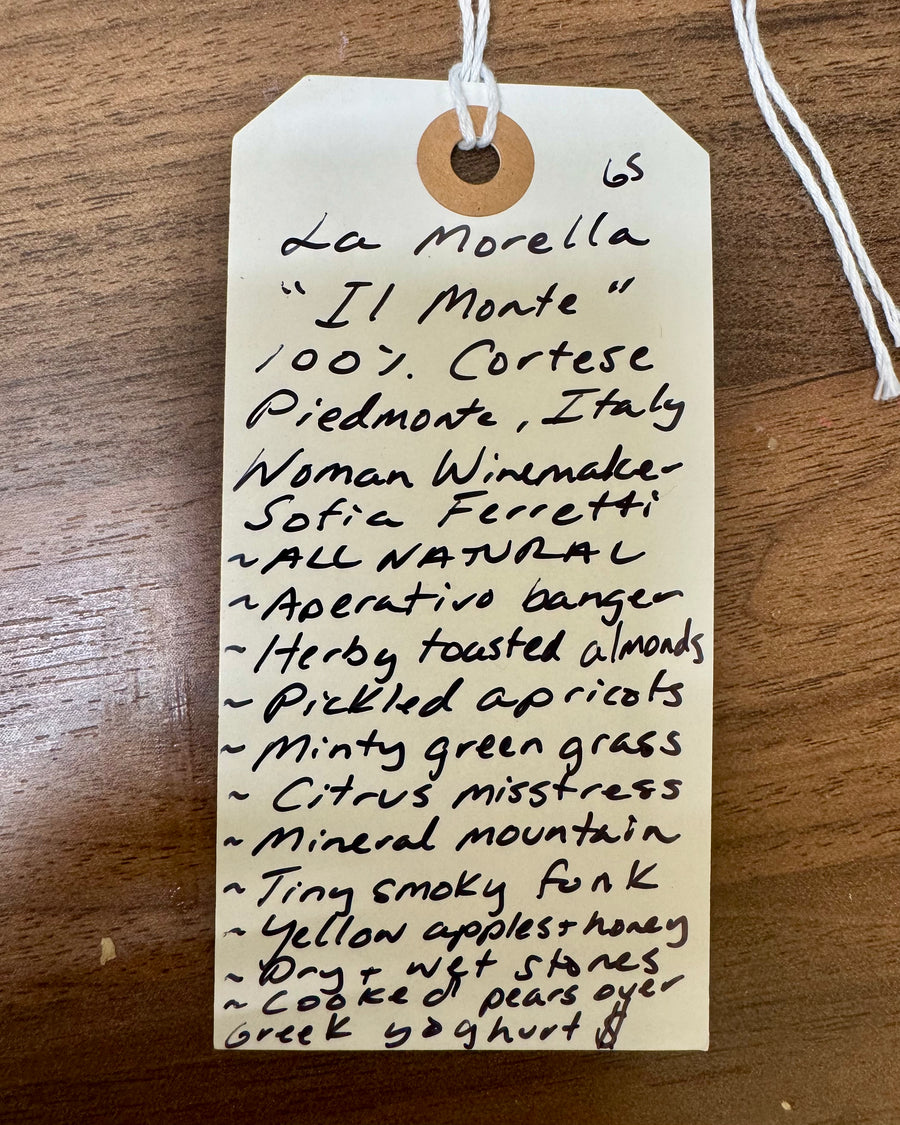 65
La Morella
"Il Monte"
100% Cortese
Piedmonte, Italy
Woman Winemaker
Sofia Ferretti
~ALL NATURAL
~Aperativo banger
~Herby toasted almonds
~Pickled apricots
~Minty green grass
~Citrus misstress
~Mineral mountain
~Tiny smoky funk
~Yellow apples+honey
~Dry + wet stones
~Cooked pears over
Greek yoghurt $